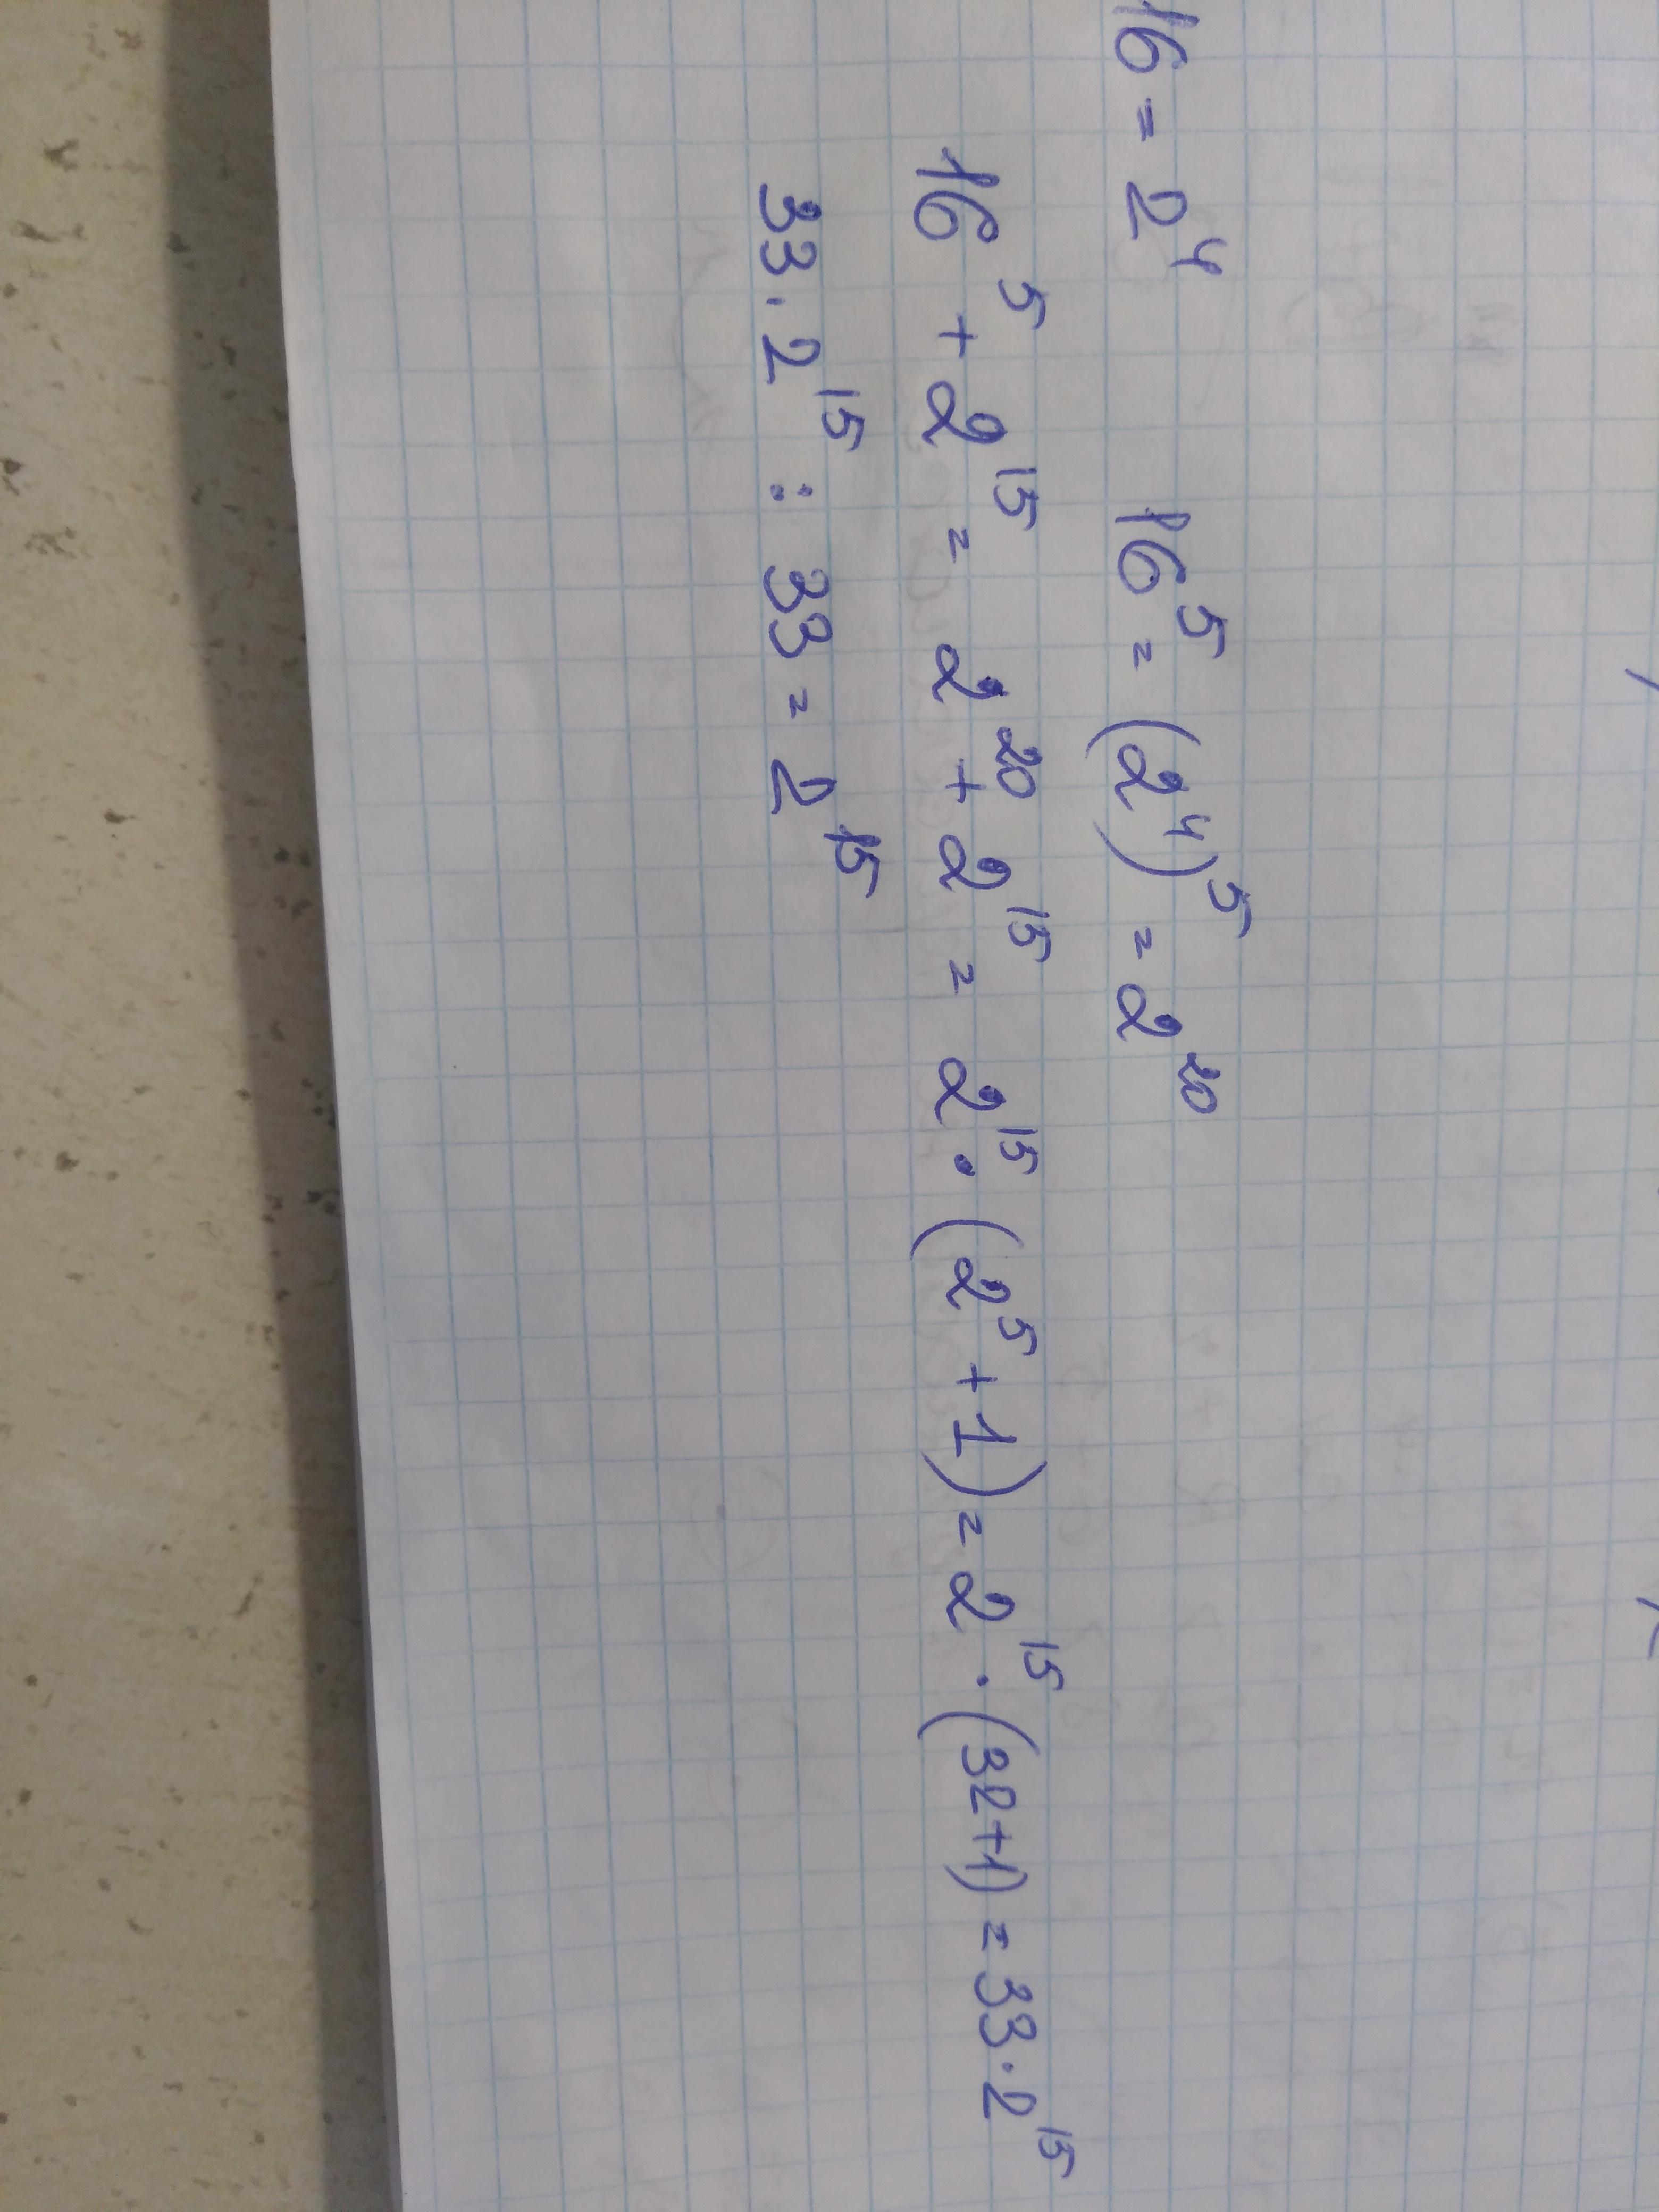 16 = 2⁴ 16⁵ = (2⁴)⁵ = 2²⁰
16⁵ + 2¹⁵ = 2²⁰ + 2¹⁵ = 2¹⁵ · (2⁵ + 1) = 2¹⁵ · (32+1) = 33 · 2¹⁵
33 · 2¹⁵ : 33 = 2¹⁵